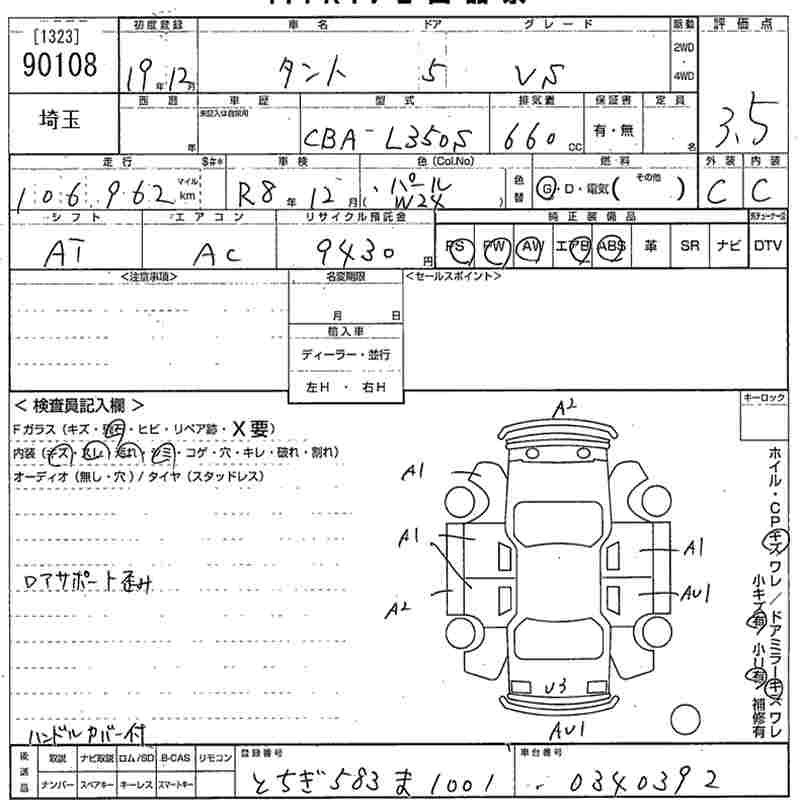 [1323]
90108
埼玉
初度登録 車名 ドア グレード 駆動 評価点
19年12月 タント 5 VS 2WD・4WD 3.5
車歴 型式 排気量 保証書 定員
年 未記入は自家用 CBA-L350S 660cc 有・無 名
走行 $#* 車検 色(Col.No) 燃料 外装 内装
106,962 マイル km R8年12月 パール W24 色替 G・D・電気( その他 ) C C
シフト エアコン リサイクル預託金 純正装備品
AT AC 9430円 PS PW AW エアB ABS 革 SR ナビ DTV
<注意事項> 名変期限 <セールスポイント>
月 日
輸入車
ディーラー・並行
左H・右H
<検査員記入欄> キーロック
Fガラス(キズ・飛石・ヒビ・リペア跡・X要)
内装(キズ・スレ・汚れ・シミ・コゲ・穴・キレ・破れ・割れ)
オーディオ(無し・穴)/タイヤ(スタッドレス)
Dアサポート歪み
ハンドルカバー付
A2
A1
A1 A1
A2 AU1
U3
AU1
ホイル・CPキズワレ/ドアミラーキズワレ
小キズ有/小U有/補修有
後送品 取説 ナビ取説 ロム/SD B-CAS リモコン 登録番号 車台番号
ナンバー スペアキー キーレス スマートキー とちぎ583ま1001 0340392